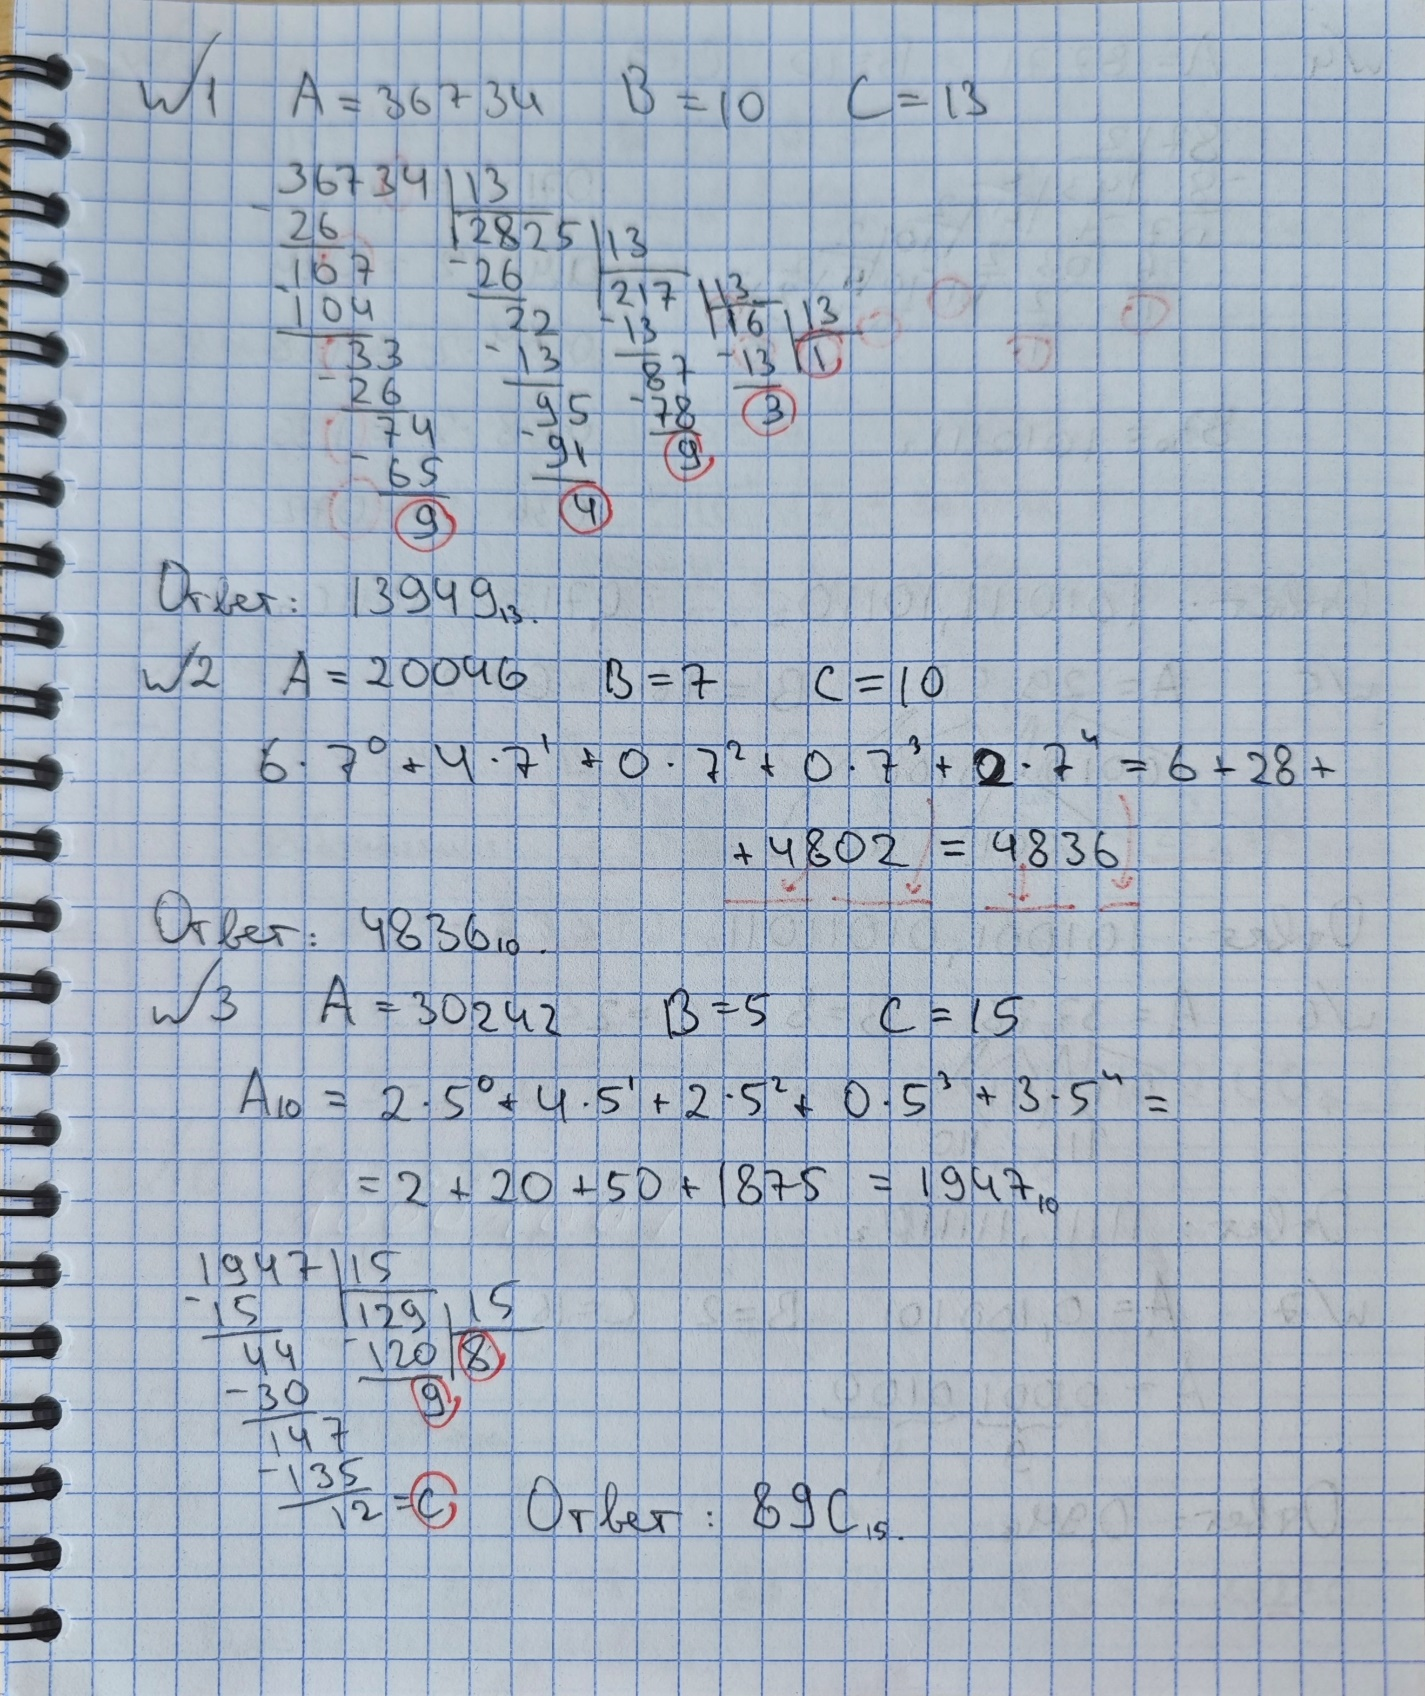 №1 A = 36734 B = 10 C = 13
36734 | 13
- 26 | 2825 | 13
107 - 26 | 217 | 13
- 104 22 - 13 | 16 | 13
33 - 13 87 - 13 | 1
- 26 95 - 78 3
74 - 91 9
- 65 4
9
Ответ: 13949₁₃.
№2 A = 20046 B = 7 C = 10
6·7⁰ + 4·7¹ + 0·7² + 0·7³ + 2·7⁴ = 6 + 28 +
+ 4802 = 4836
Ответ: 4836₁₀.
№3 A = 30242 B = 5 C = 15
A₁₀ = 2·5⁰ + 4·5¹ + 2·5² + 0·5³ + 3·5⁴ =
= 2 + 20 + 50 + 1875 = 1947₁₀
1947 | 15
- 15 | 129 | 15
44 - 120 | 8
- 30 9
147
- 135
12 = C Ответ: 89C₁₅.